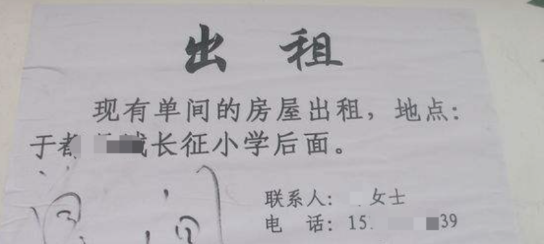 出租
现有单间的房屋出租，地点：
于都 城长征小学后面。
联系人： 女士
电 话：15. 39